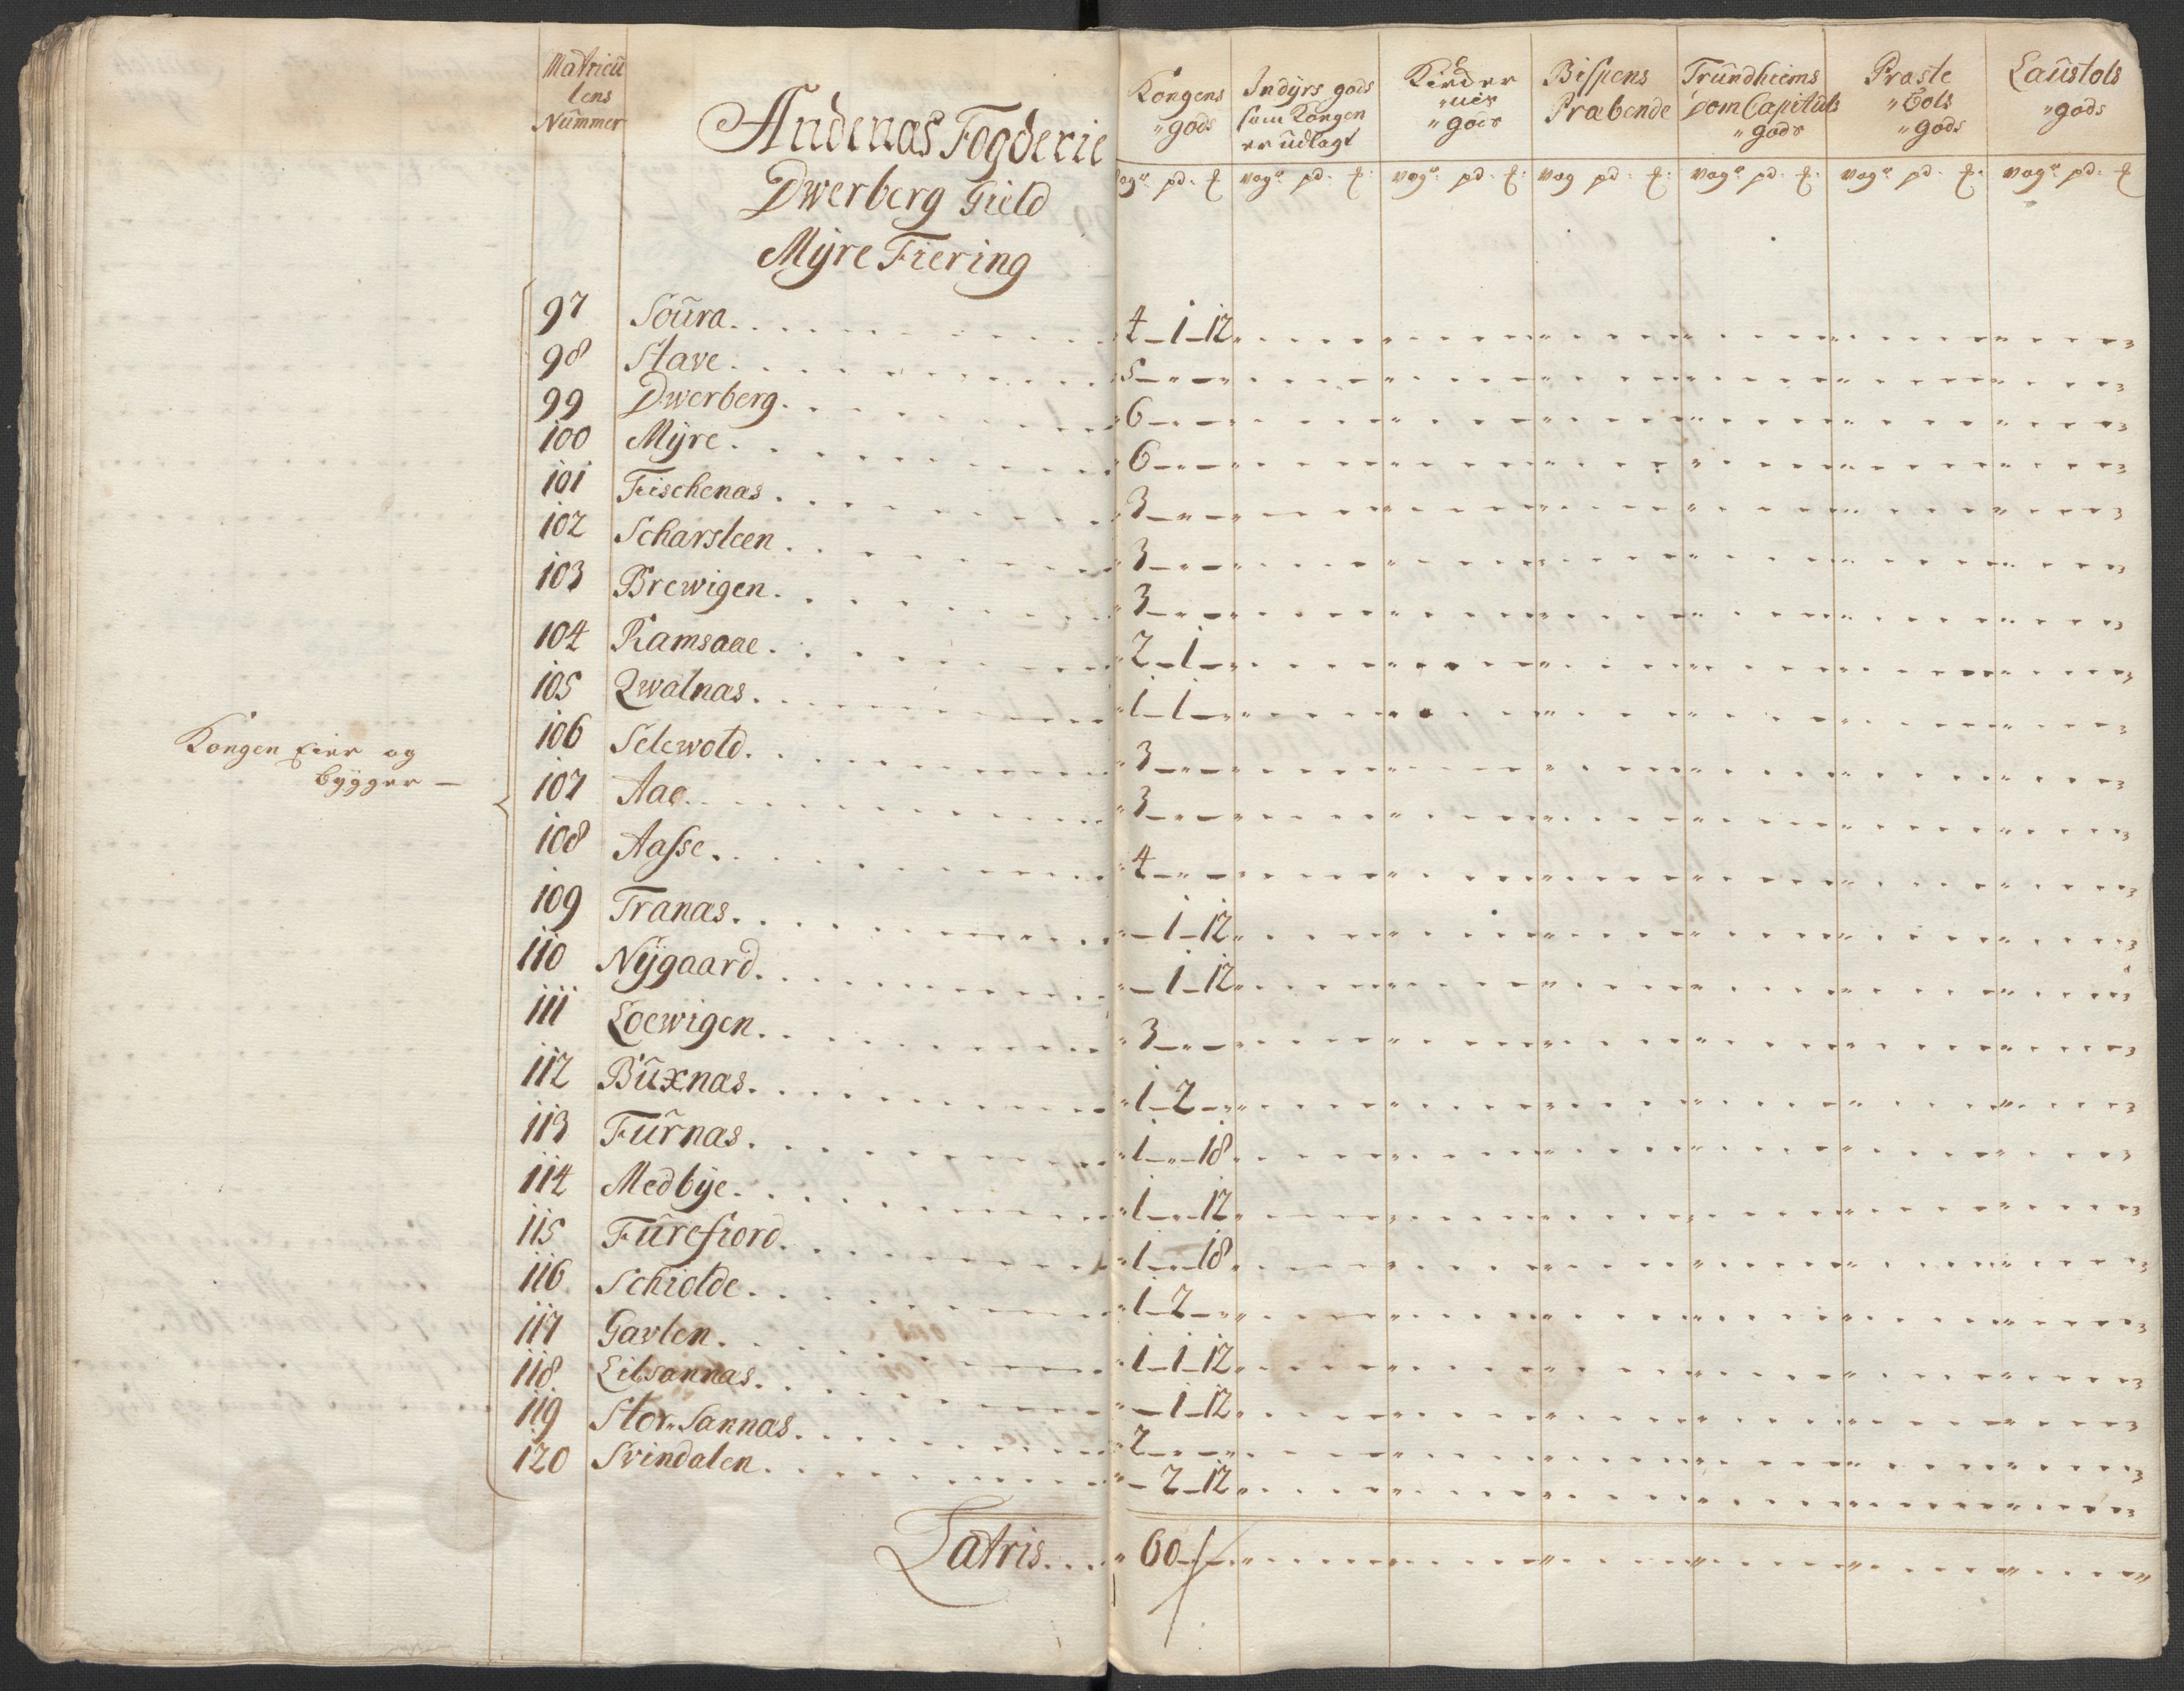 Matricu
lens
Nummer
Andenas Fogderie
Dwerberg Gield
Myre Fiering
Kongens
"gods
Indyrs gods
som Kongen
er udlagt
Kircker
"nes
"gods
Bispens
Præbende
Trundhiems
Dom Capituls
"gods
Præste
"Bols
"gods
Laustols
"gods
vog" pd. ℔ vog" pd. ℔. vog" pd. ℔. vog pd. ℔. vog" pd. ℔. vog" pd. ℔. vog" pd. ℔
97 Soura. 4 — 1 — 12
98 Stave. 5 — " —
99 Dwerberg. 6 — " —
100 Myre. 6 — " —
101 Fischenas. 3 — " —
102 Scharsteen. 3 — " —
103 Brewigen. 3 — " —
104 Ramsaae. 2 — 1 —
105 Qwalnas. 1 — 1 —
106 Selewold. 3 — " —
107 Aae. 3 — " —
108 Aasse. 4 — " —
109 Tranas. " — 1 — 12
110 Nygaard. " — 1 — 12
111 Loewigen. 3 — " —
112 Buxnas. 1 — 2 —
113 Furnas. 1 — " — 18
114 Medbye. 1 — " — 12
115 Furefiord. 1 — " — 18
116 Schiolde. 1 — 2 —
117 Gavlen. 1 — 1 — 12
118 Lilsannas. " — 1 — 12
119 Stor-Sannas. 2 — " —
120 Svindalen. " — 2 — 12
Kongen Eier og
bygger —
Latris... 60 — 1 —